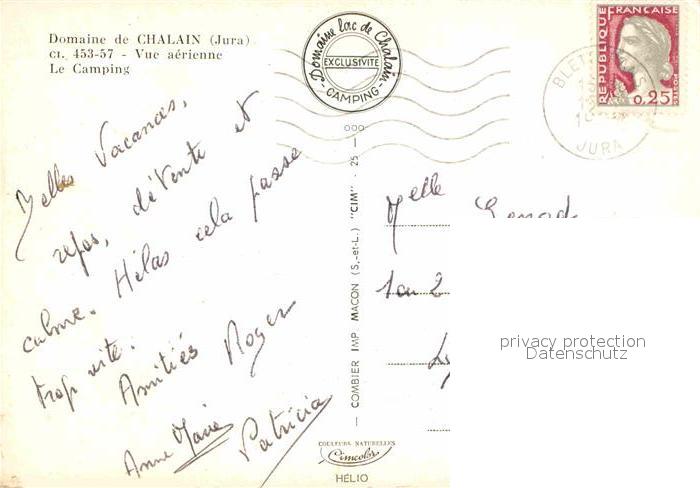 Domaine de CHALAIN (Jura)
CI. 453-57 - Vue aérienne
Le Camping
Domaine lac de Chalain
EXCLUSIVITÉ
- CAMPING -
RÉPUBLIQUE FRANÇAISE
0,25
POSTES
JURA
Belles Vacances,
repos, détente et
calme. Hélas cela passe
trop vite.
Amitiés Roger
Anne Marie
Patricia
— COMBIER IMP MACON (S.-et-L.) "CIM" - 25 —
COULEURS NATURELLES
Cimcolor
HÉLIO
Melle
1 ou 2
privacy protection
Datenschutz